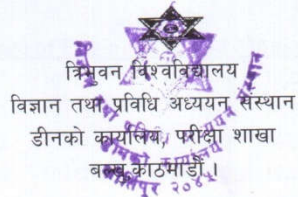 त्रिभुवन विश्वविद्यालय
विज्ञान तथा प्रविधि अध्ययन संस्थान
डीनको कार्यालय, परीक्षा शाखा
बल्खु,काठमाडौँ ।